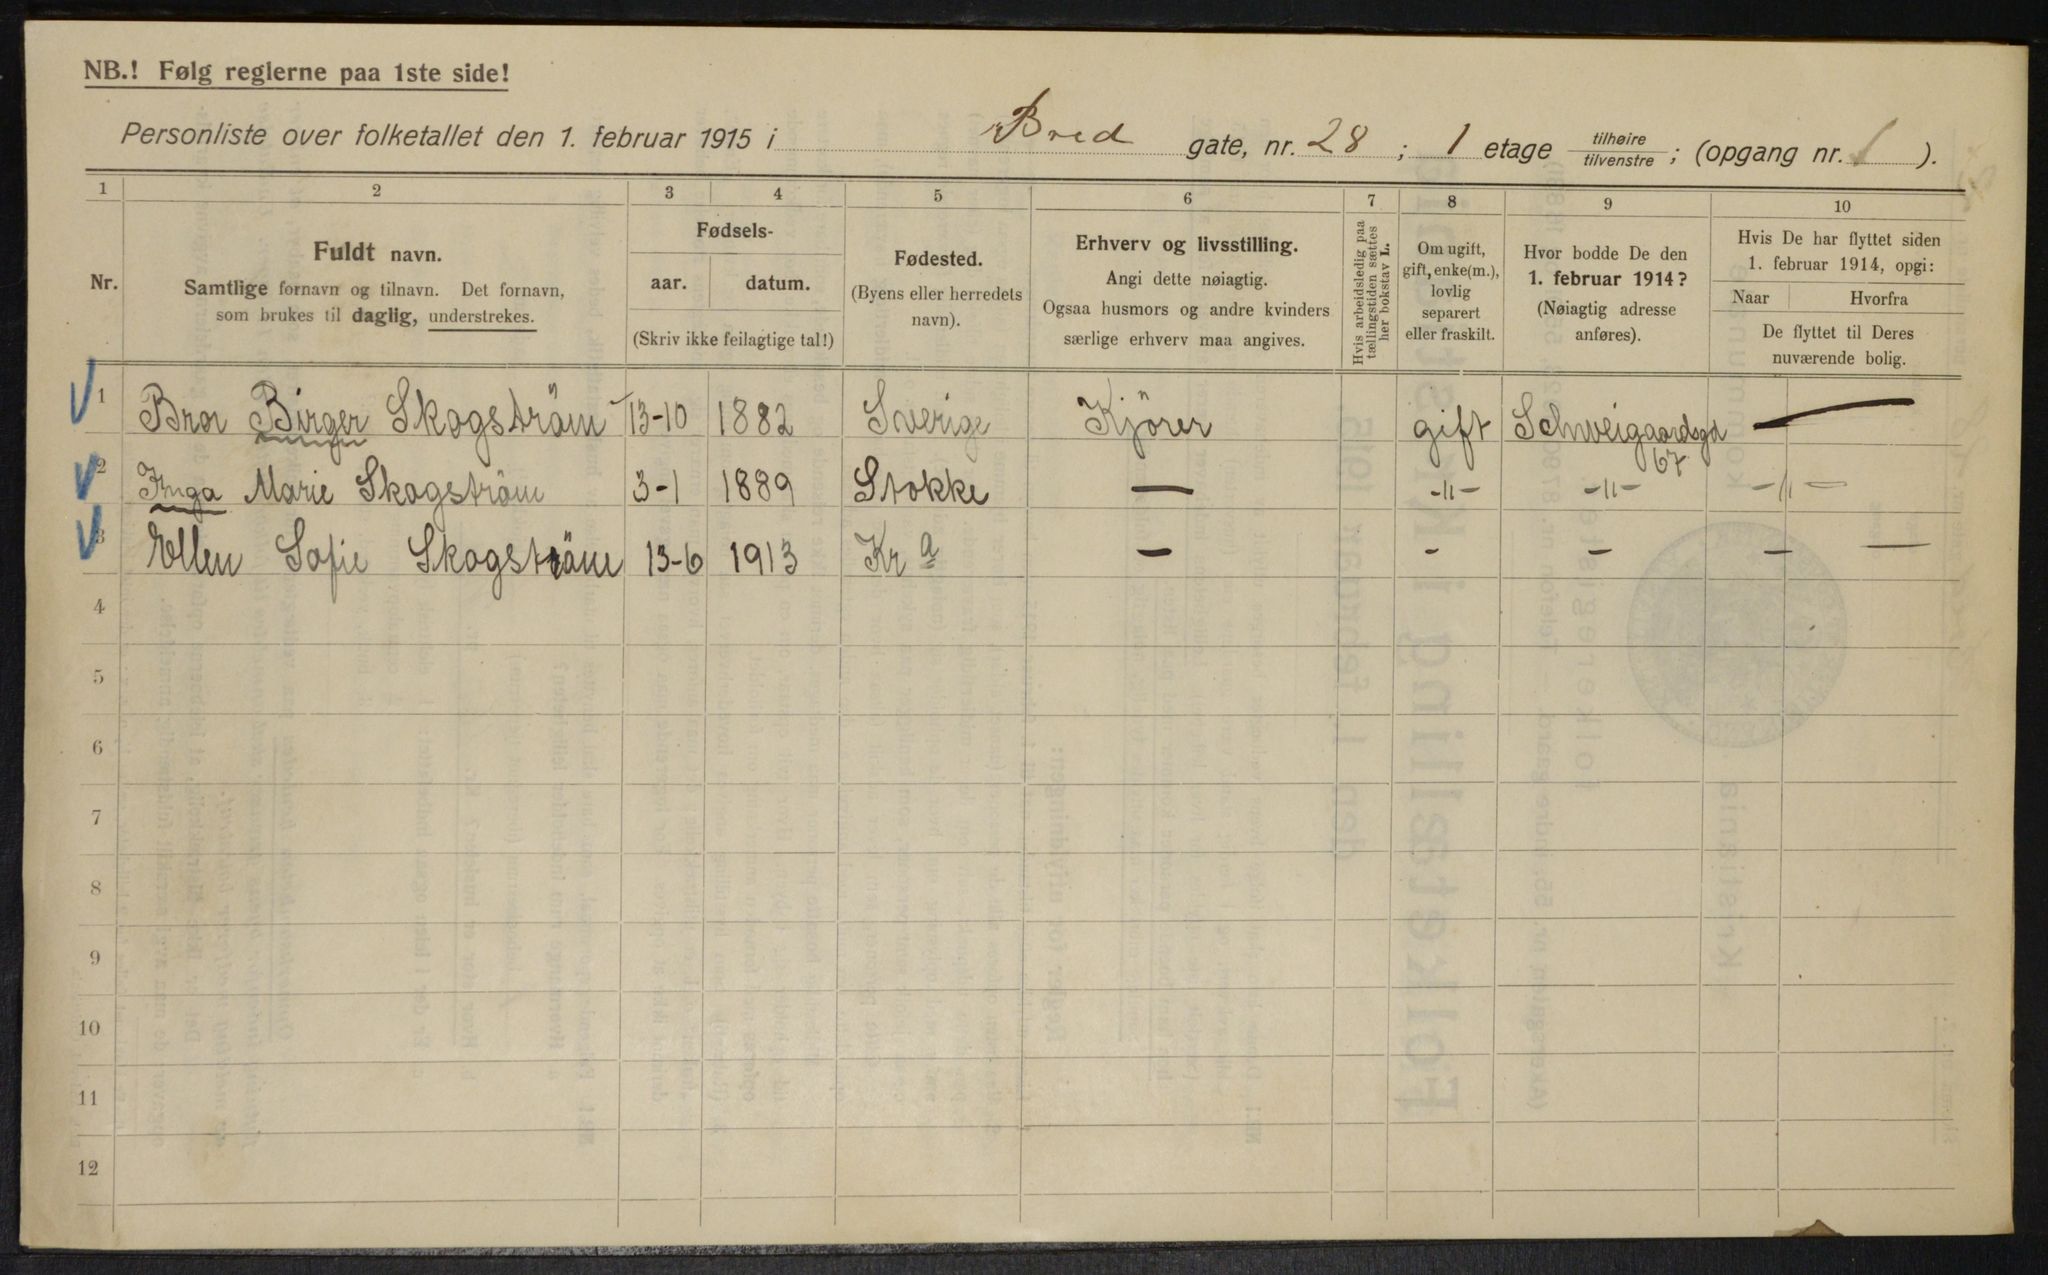 NB.! Følg reglerne paa 1ste side!
Personliste over folketallet den 1. februar 1915 i Bred gate, nr. 28 ; 1 etage tilhøire tilvenstre ; (opgang nr. 1 ).
1 2 3 4 5 6 7 8 9 10
Nr.
Fuldt navn.
Samtlige fornavn og tilnavn. Det fornavn,
som brukes til daglig, understrekes.
Fødsels-
aar. datum.
(Skriv ikke feilagtige tal!)
Fødested.
(Byens eller herredets
navn).
Erhverv og livsstilling.
Angi dette nøiagtig.
Ogsaa husmors og andre kvinders
særlige erhverv maa angives.
Hvis arbeidsledig paa
tællingstiden sættes
her bokstav L.
Om ugift,
gift, enke(m.),
lovlig
separert
eller fraskilt.
Hvor bodde De den
1. februar 1914?
(Nøiagtig adresse
anføres).
Hvis De har flyttet siden
1. februar 1914, opgi:
Naar Hvorfra
De flyttet til Deres
nuværende bolig.
1 Bror Birger Skogström 13-10 1882 Sverige Kjörer gift Schweigaardsgd 67 —
2 Inga Marie Skogström 3-1 1889 Stokke — -"- -"- -"-
3 Ellen Sofie Skogström 13-6 1913 Kra — - - - —
4
5
6
7
8
9
10
11
12